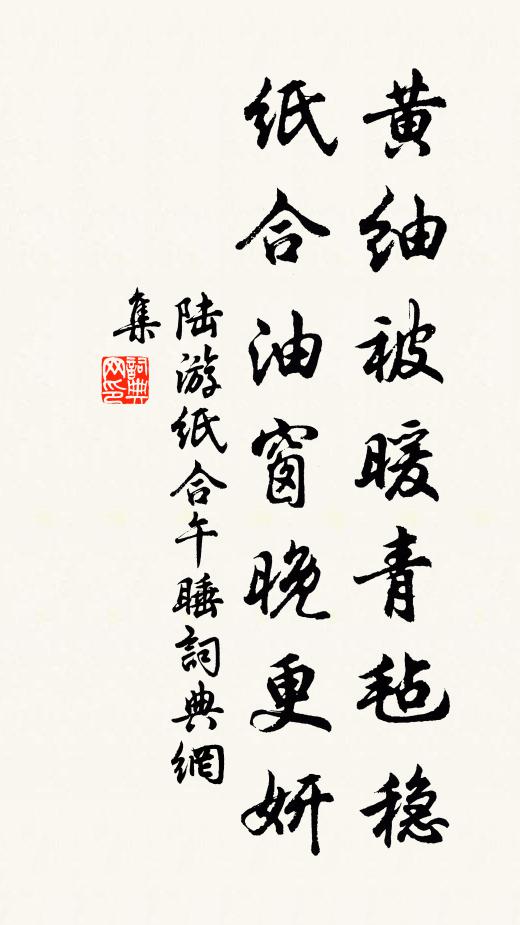 黄䌷被暖青毡稳
纸合油窗晚更妍
陆游纸合午睡詞典網
集
詞典
网印